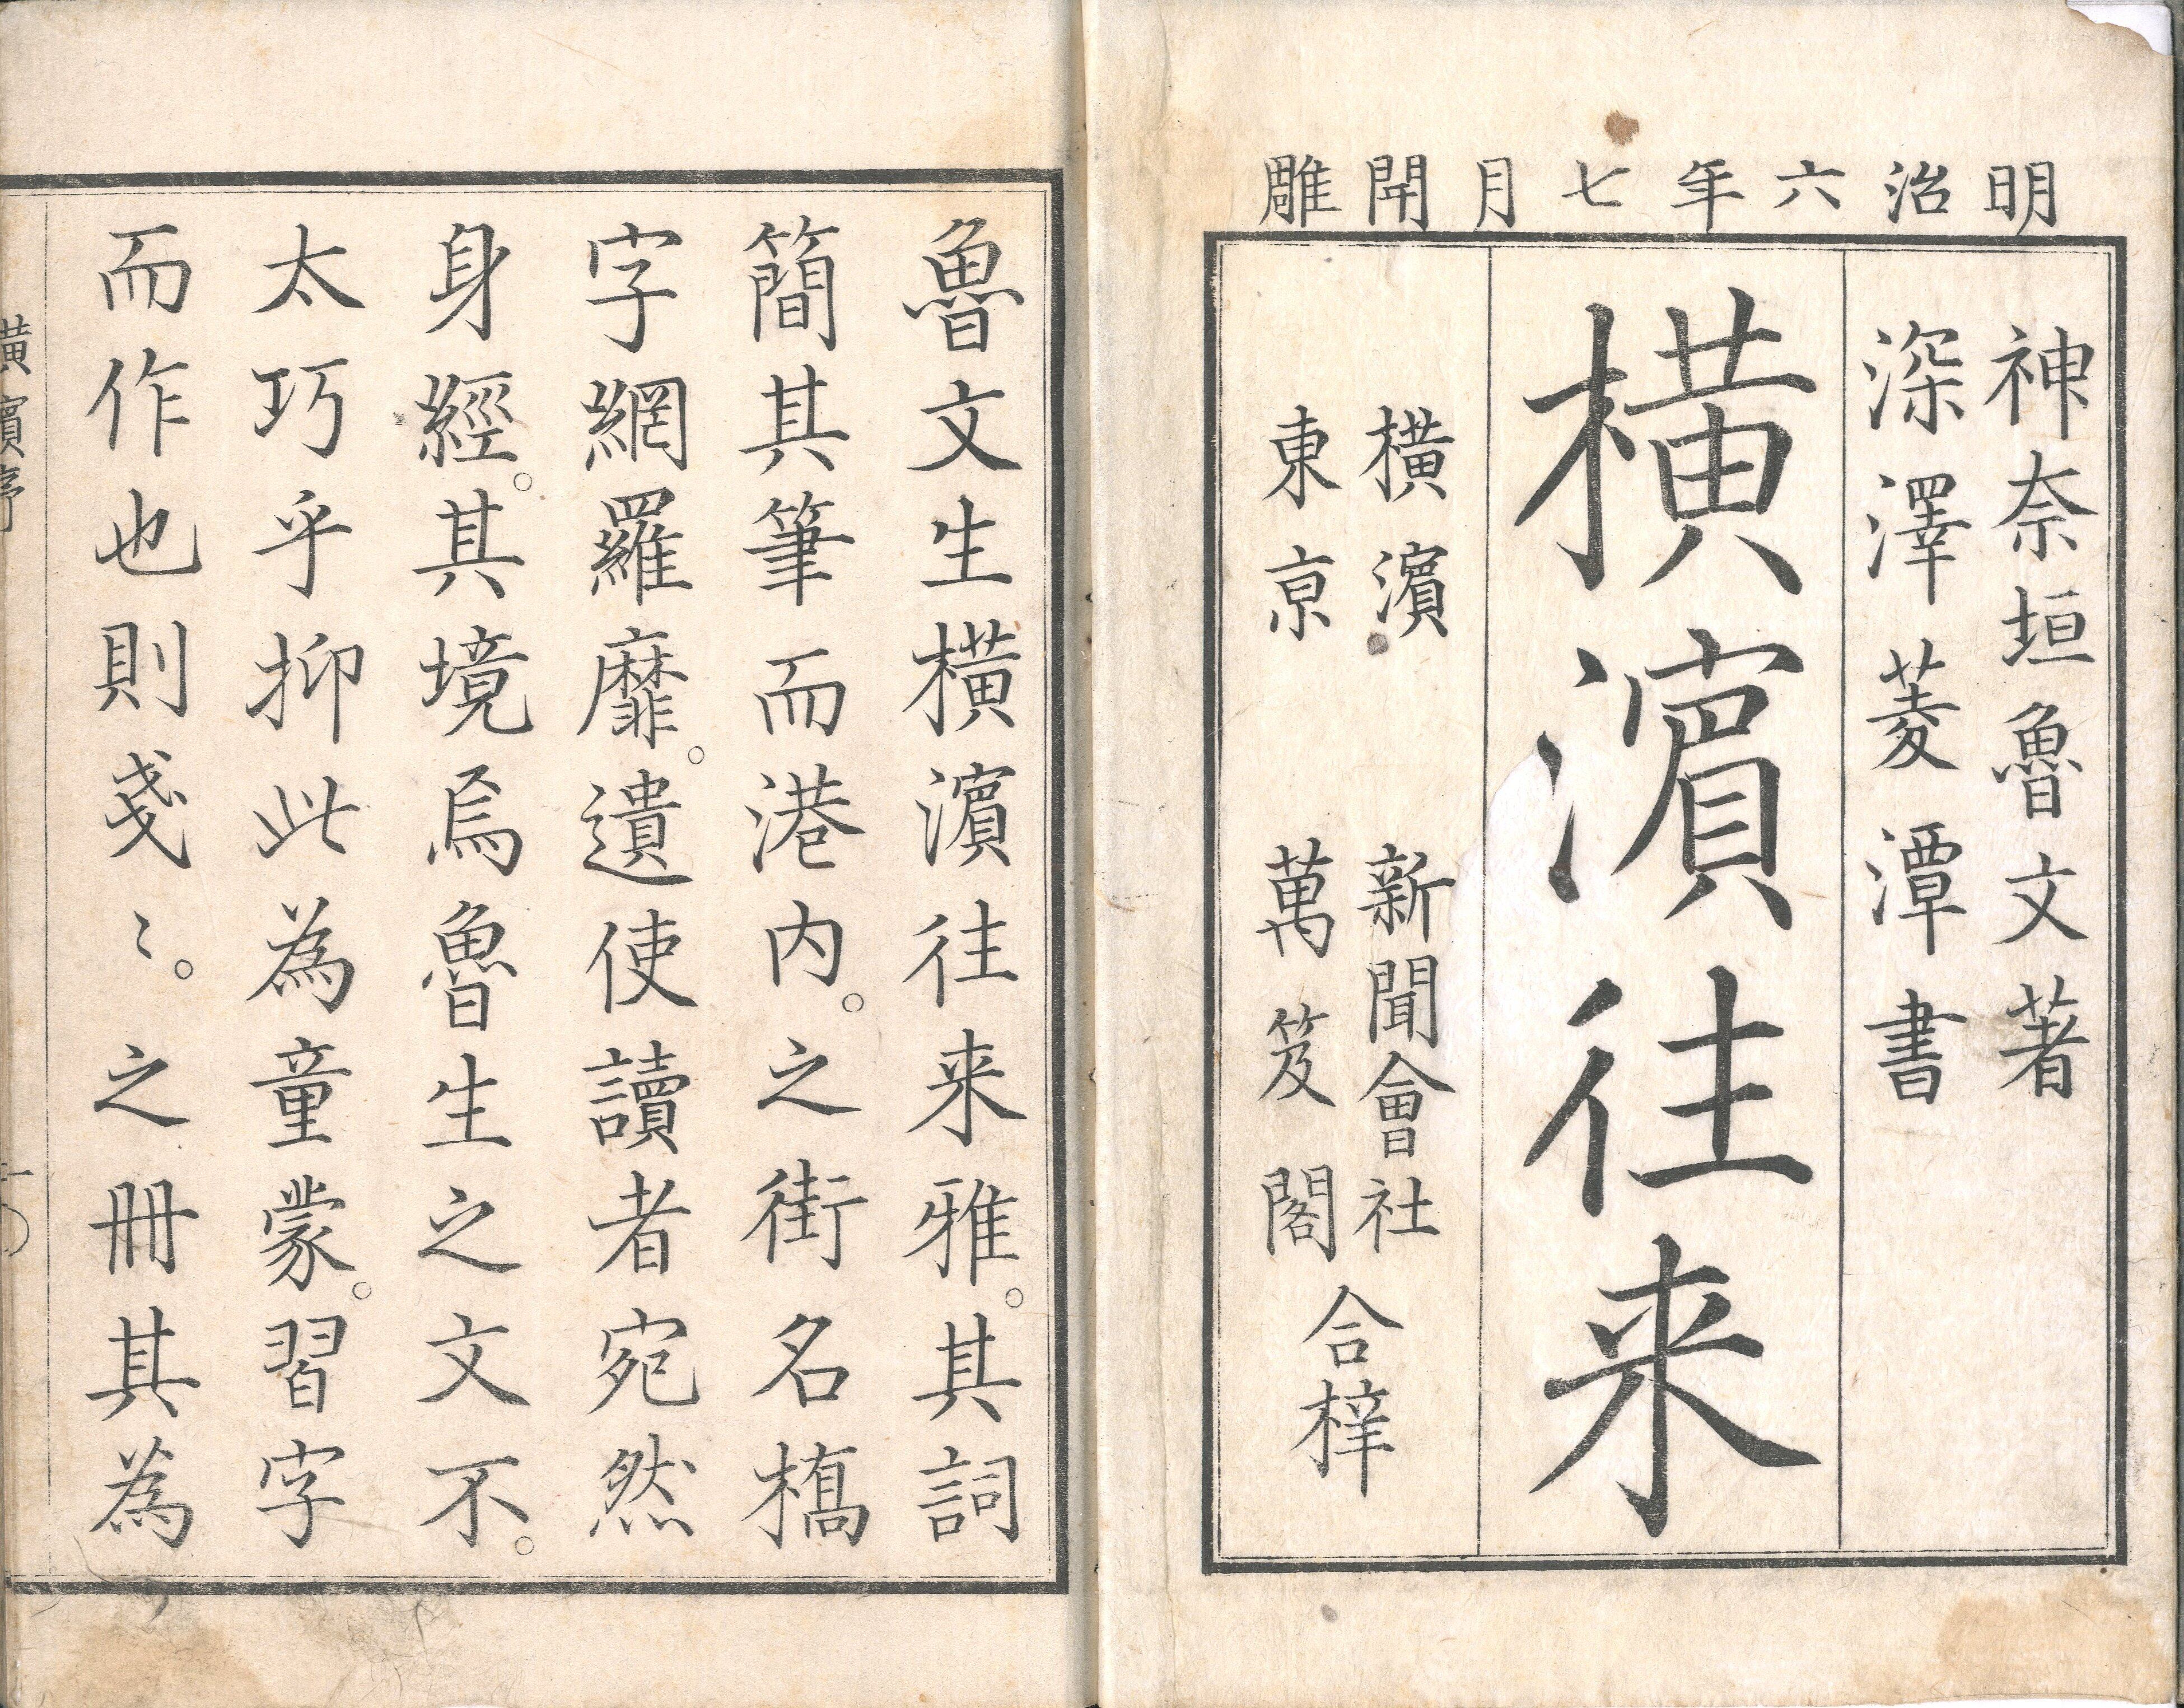 明治六年七月開雕
神奈垣魯文著
深澤菱潭書
横濵往来
横濵 新聞會社
東京 萬笈閣
合梓
魯文生横濵往来雅。其詞
簡其筆而港内。之街名橋
字網羅靡。遺使讀者宛然
身經。其境焉魯生之文不。
太巧乎抑此為童蒙。習字
而作也則戔〻。之冊其為
横濵序
一